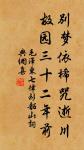 别梦依稀咒逝川
故园三十二年前
毛泽东七律到韶山词
典倜喜